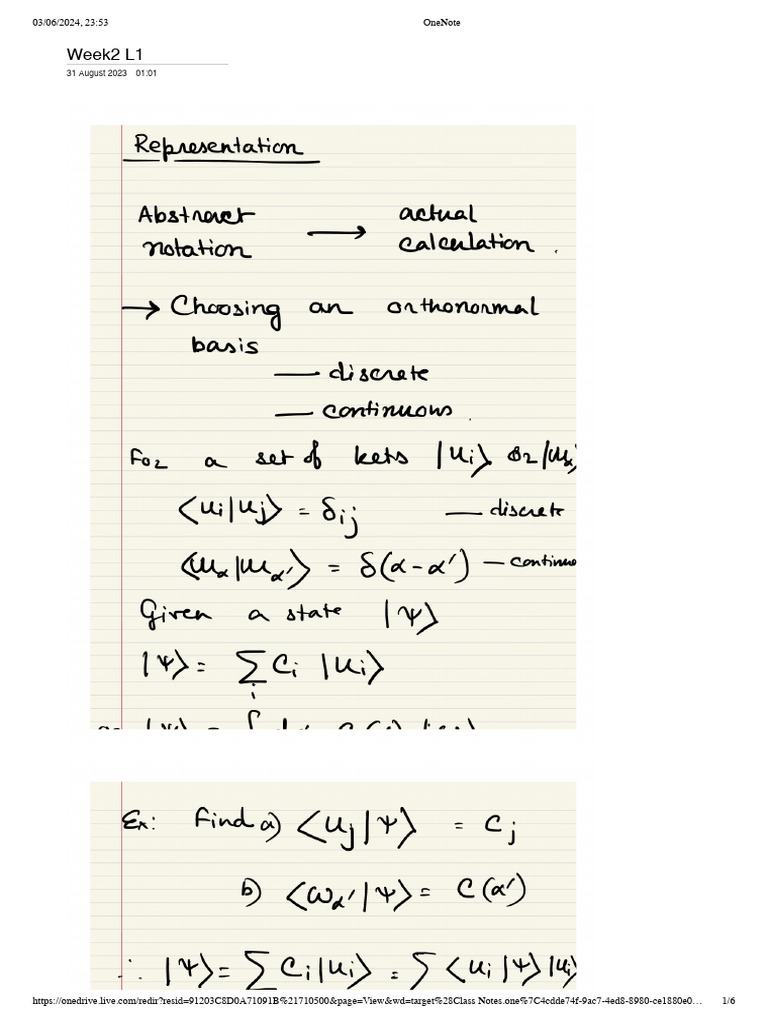 03/06/2024, 23:53 OneNote
Week2 L1
31 August 2023 01:01
Representation
Abstract notation → actual calculation.
→ Choosing an orthonormal
basis
— discrete
— continuous.
For a set of kets |u_i⟩ or |ω_α⟩
⟨u_i|u_j⟩ = δ_ij — discrete
⟨ω_α|ω_α'⟩ = δ(α-α') — continuo
Given a state |Ψ⟩
|Ψ⟩ = ∑_i C_i |u_i⟩
Ex: Find a) ⟨u_j|Ψ⟩ = C_j
b) ⟨ω_α'|Ψ⟩ = C(α')
∴ |Ψ⟩ = ∑ C_i|u_i⟩ = ∑ ⟨u_i|Ψ⟩|u_i⟩
https://onedrive.live.com/redir?resid=91203C8D0A71091B%21710500&page=View&wd=target%28Class Notes.one%7C4cdde74f-9ac7-4ed8-8980-ce1880e0… 1/6